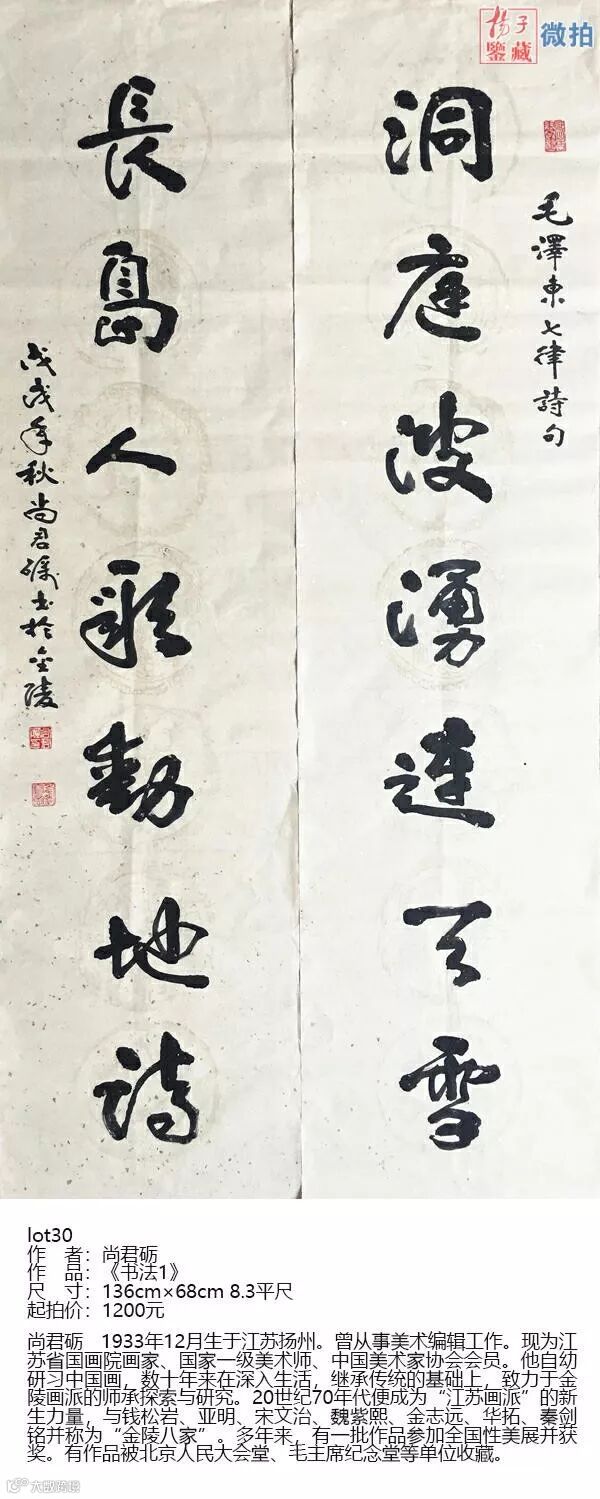 揚子
鑒藏
微拍
毛澤東七律詩句
洞庭波湧連天雪
長島人歌動地詩
戊戌年秋尚君礪书於金陵
lot30
作 者：尚君砺
作 品：《书法1》
尺 寸：136cm×68cm 8.3平尺
起拍价：1200元
尚君砺 1933年12月生于江苏扬州。曾从事美术编辑工作。现为江
苏省国画院画家、国家一级美术师、中国美术家协会会员。他自幼
研习中国画，数十年来在深入生活，继承传统的基础上，致力于金
陵画派的师承探索与研究。20世纪70年代便成为“江苏画派”的新
生力量，与钱松岩、亚明、宋文治、魏紫熙、金志远、华拓、秦剑
铭并称为“金陵八家”。多年来，有一批作品参加全国性美展并获
奖。有作品被北京人民大会堂、毛主席纪念堂等单位收藏。
大数跨境